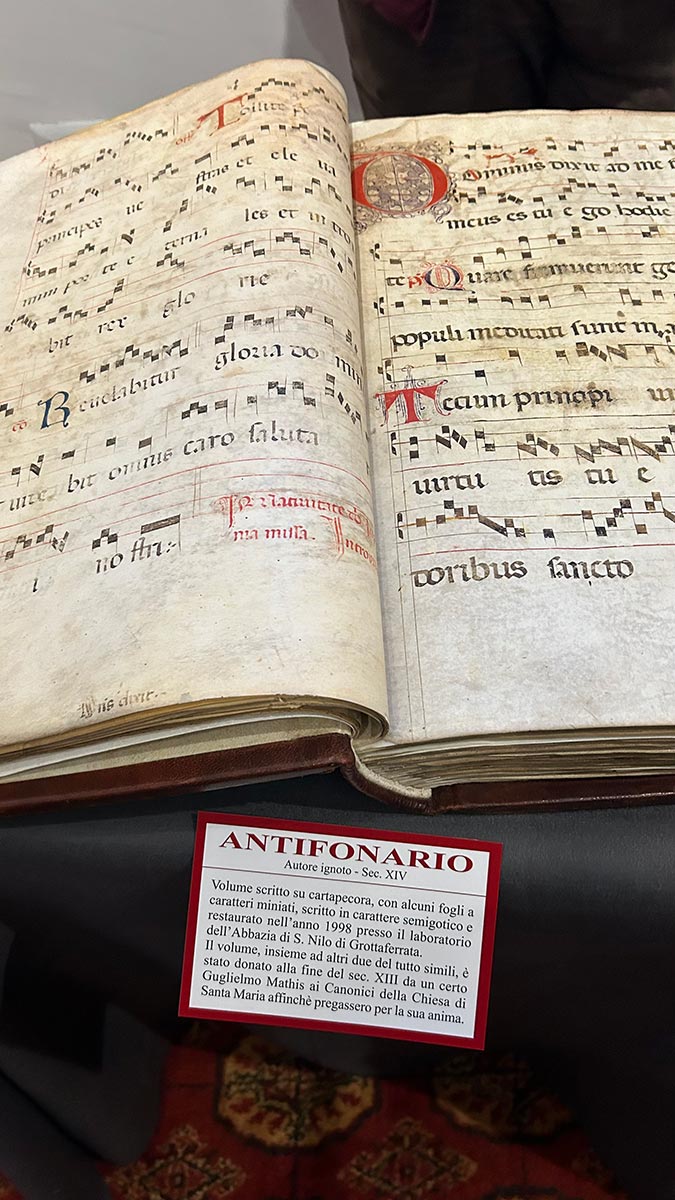 Tollite p
di
stras et ele ua
principes ue
les et in tro
mini por te e terna
bit rex glo rie
Reuelabitur gloria do mi
bit omnis caro saluta
no stri:-
ma missa. Intro
nis dixit.
Ominus dixit ad me f
meus es tu e go hodie
te Quare fremuerunt ge
populi meditati sunt in
Tecum principi
uirtu tis tu e
doribus sancto
ANTIFONARIO
Autore ignoto - Sec. XIV
Volume scritto su cartapecora, con alcuni fogli a
caratteri miniati, scritto in carattere semigotico e
restaurato nell'anno 1998 presso il laboratorio
dell'Abbazia di S. Nilo di Grottaferrata.
Il volume, insieme ad altri due del tutto simili, è
stato donato alla fine del sec. XIII da un certo
Guglielmo Mathis ai Canonici della Chiesa di
Santa Maria affinchè pregassero per la sua anima.